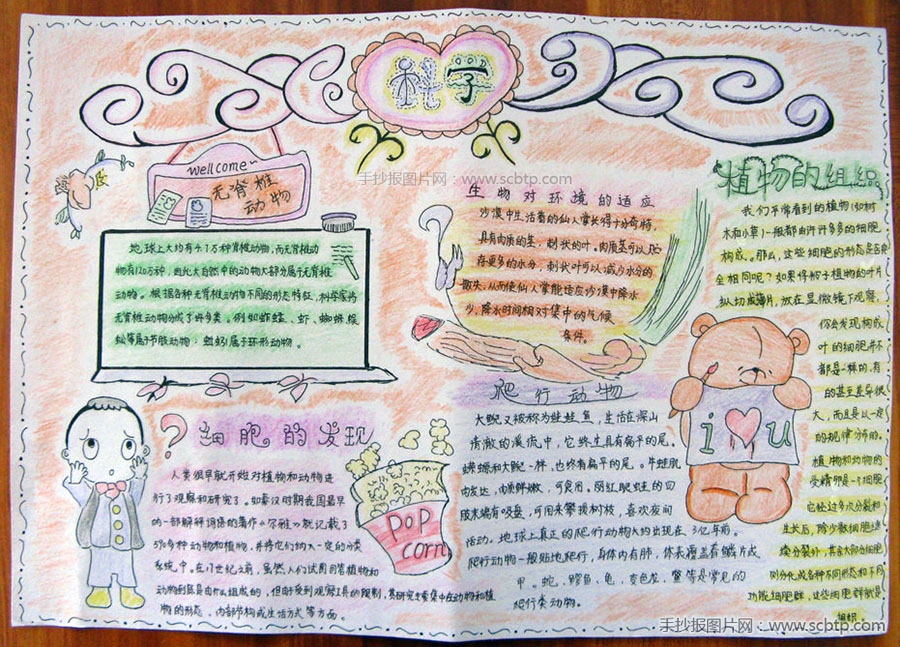 科学
手抄报图片网：www.scbtp.com
wellcome~
无脊椎
动物
地球上大约有4.7万种脊椎动物，而无脊椎动
物有120万种，因此大自然中的动物大部分属于无脊椎
动物。根据各种无脊椎动物不同的形态特征，科学家将
无脊椎动物分成了许多类。例如蚱蜢、虾、蜘蛛、蜈
蚣等属于节肢动物；蚯蚓属于环形动物。
生物对环境的适应
沙漠中生活着的仙人掌长得十分奇特，
具有肉质的茎，刺状的叶。肉质茎可以贮
存更多的水分，刺状叶可以减少水分的
散失，从而使仙人掌能适应沙漠中降水
少，降水时间相对集中的气候
条件。
植物的组织
我们平常看到的植物（如树
木和小草）一般都由许许多多的细胞
构成。那么，这些细胞的形态是否完
全相同呢？如果你将植物的叶片
纵切成薄片，放在显微镜下观察，
你会发现构成
叶的细胞并不
都是一样的，有
的甚至差异很
大，而且是以一定
的规律分布的。
植物和动物的
受精卵是一个细胞
它经过多次分裂和
生长后，除少数细胞继
续分裂外，其余大部分细胞
则分化成各种不同形态和不同
功能细胞群，这些细胞群就是
组织。
i u
?
细胞的发现
人类很早就开始对植物和动物进
行了观察和研究了。如秦汉时期我国最早
的一部解释词语的著作《尔雅》就记载了
590多种动物和植物，并将它们纳入一定的分类
系统中。在17世纪之前，虽然人们试图回答植物和
动物到底是由什么组成的，但由于受到观察工具的限制，其研究主要集中在动物和植
物的形态、内部节构或生活方式等方面。
POP
corn
爬行动物
大鲵又被称为娃娃鱼，生活在深山
清澈的溪流中，它终生具有扁平的尾。
蝾螈和大鲵一样，也终有扁平的尾。牛蛙肌
肉发达，肉质鲜嫩，可食用。丽红眼蛙的四
肢末端有吸盘，可用来攀援树枝，喜欢夜间
活动。地球上真正的爬行动物大约出现在3亿年前。
爬行动物一般贴地爬行，身体内有肺，体表覆盖着鳞片或
甲。蛇、鳄鱼、龟、变色龙、鳖等是常见的
爬行类动物。
手抄报图片网：www.scbtp.com